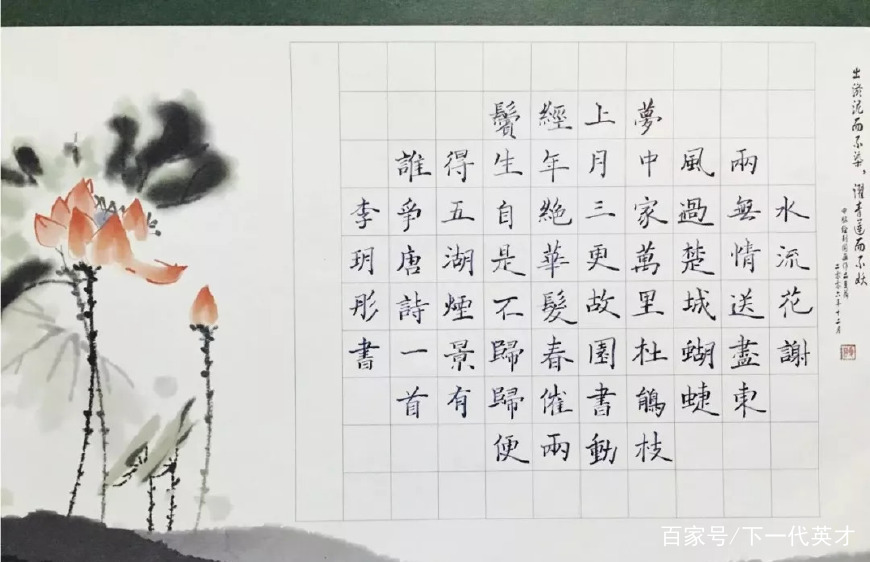 出淤泥而不染，濯青蓮而不妖
二〇〇六年十二月
水流花謝
兩無情送盡東
風過楚城蝴蜨
夢中家萬里杜鵑枝
上月三更故園書動
經年絕華髮春催兩
鬢生自是不歸歸便
得五湖煙景有
誰爭唐詩一首
李玥彤書
百家号/下一代英才